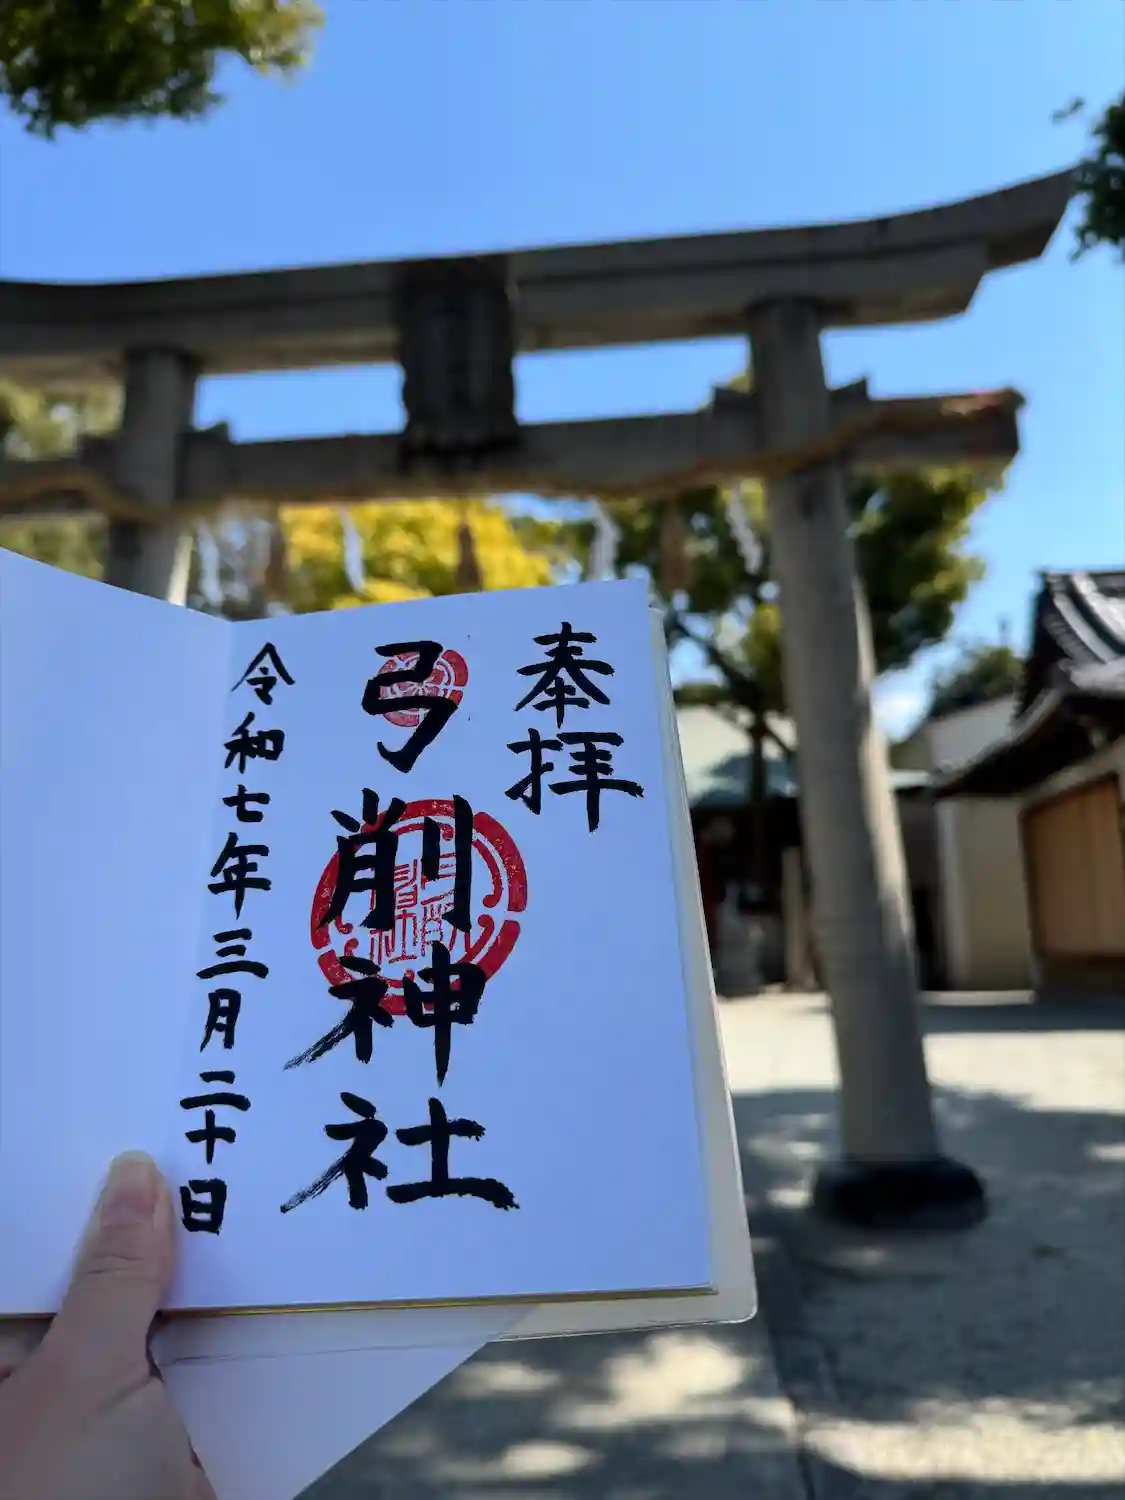 奉拝
弓削神社
令和七年三月二十日